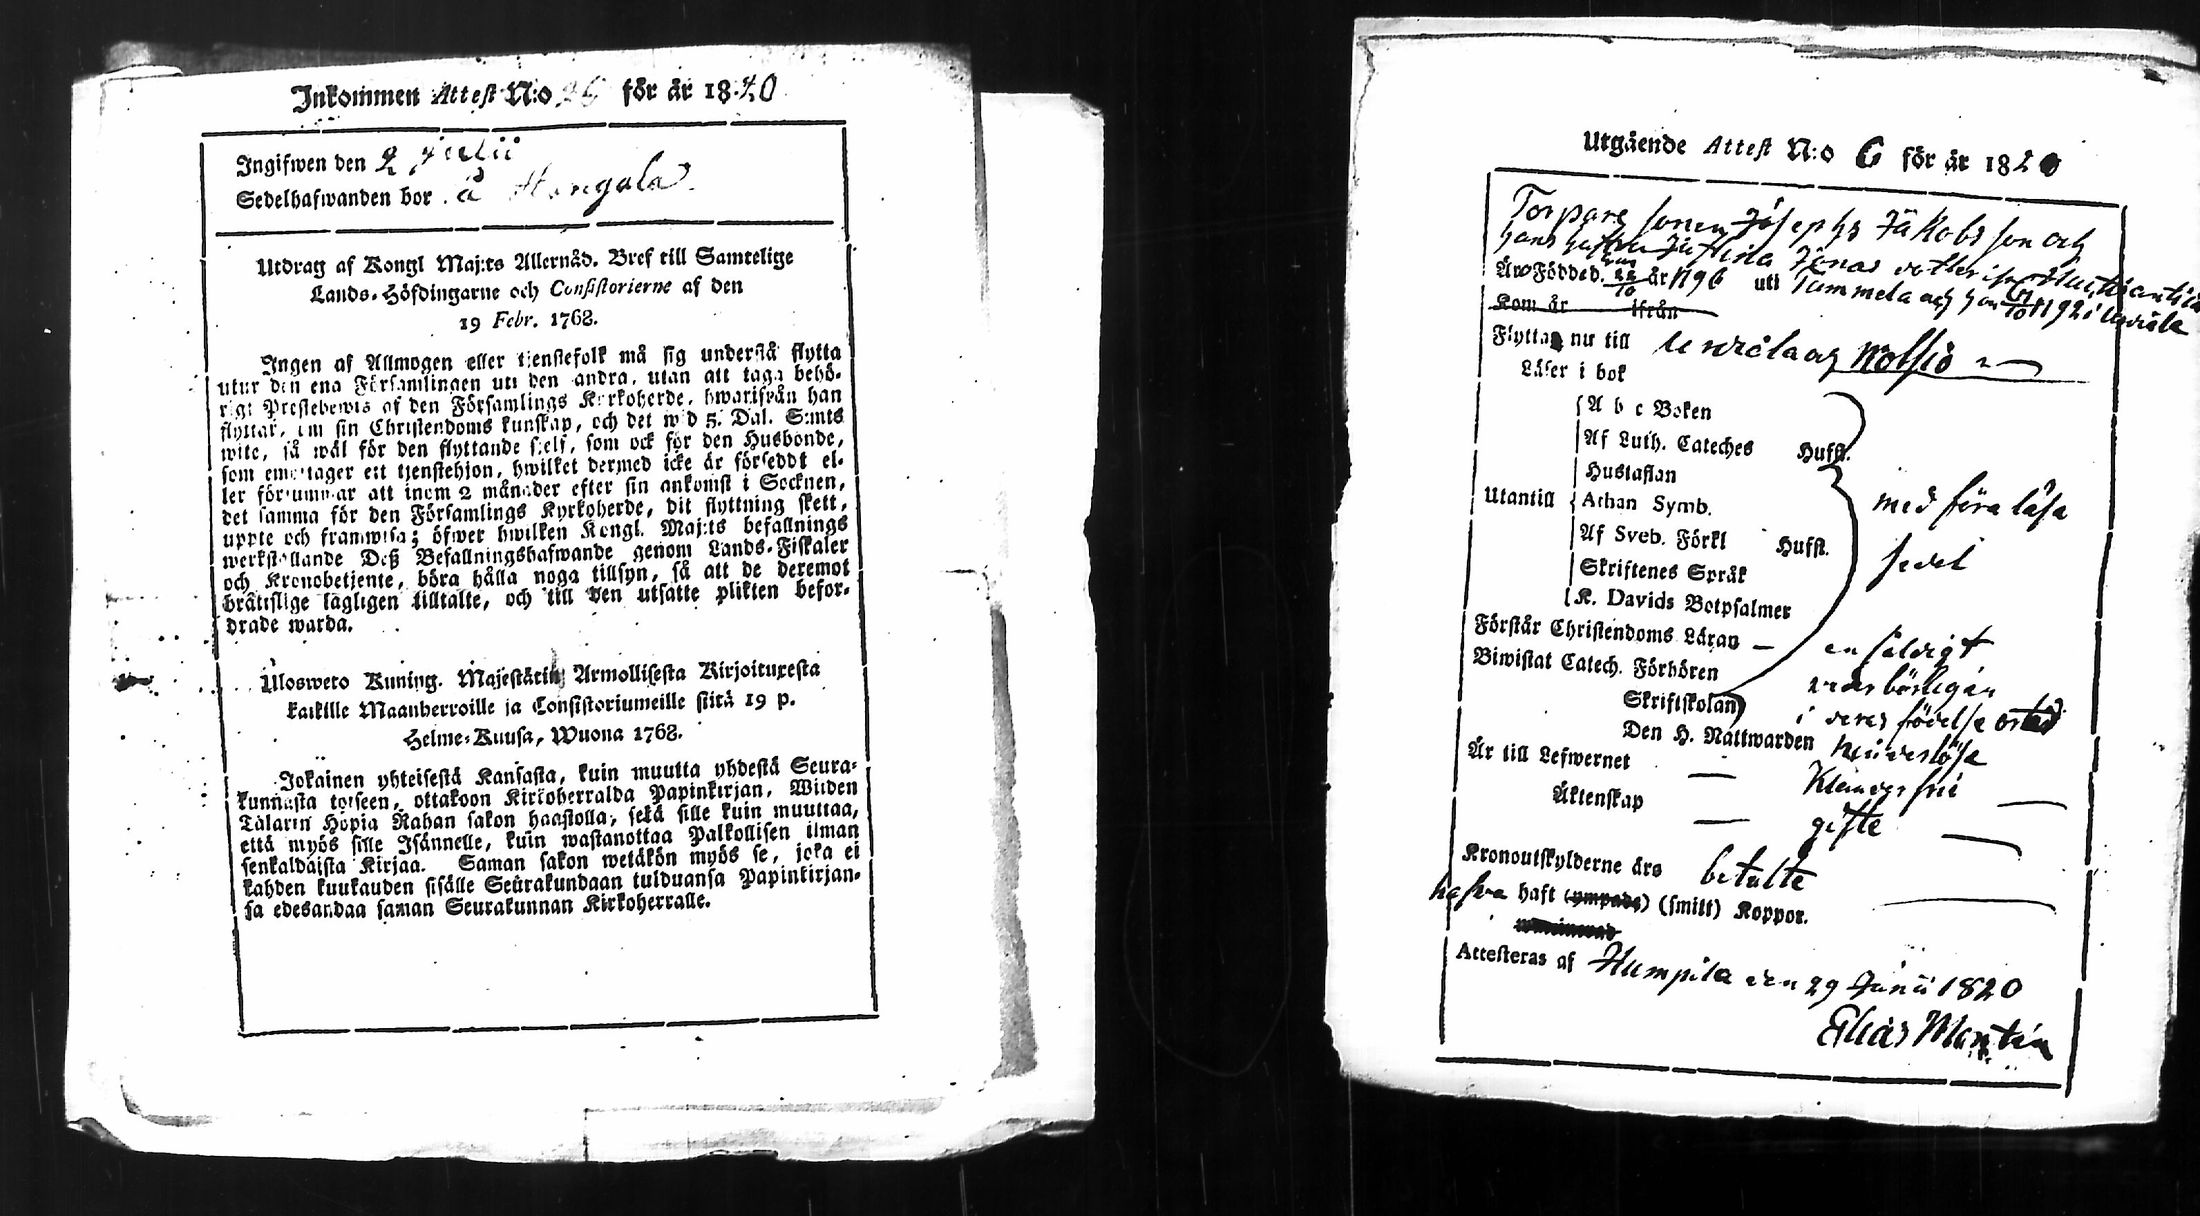 Inkommen Attest N:o 26 för år 1820
Ingifwen den 2 Julii
Sedelhafwanden bor å
Utdrag af Kongl Maj:ts Allernåd. Bref till Samtelige
Lands-Höfdingarne och Consistorierne af den
19 Febr. 1768.
Ingen af Allmogen eller tjenstefolk må sig understå flytta
utur den ena Församlingen uti den andra, utan att taga behö-
rigt Prestebewis af den Församlings Kyrkoherde, hwarifrån han
flyttar, om sin Christendoms kunskap, och det wid 5. Dal. S:mts
wite, så wäl för den flyttande sjelf, som ock för den Husbonde,
som emottager ett tjenstehjon, hwilket dermed icke är försedt el-
ler försummar att inom 2 månader efter sin ankomst i Socknen,
det samma för den Församlings Kyrkoherde, dit flyttning skett,
uppte och framwisa; öfwer hwilken Kongl. Maj:ts befallnings
werkställande Deß Befallningshafwande genom Lands-Fiskaler
och Kronobetjente, böra hålla noga tillsyn, så att de deremot
bråttslige lagligen tilltalte, och till den utsatte plikten befor-
drade warda.
Ulosweto Kuning. Majestätin Armollisesta Kirjoituxesta
kaikille Maanherroille ja Consistoriumeille siitä 19 p.
Helme-Kuusa, Wuona 1768.
Jokainen yhteisestä Kansasta, kuin muutta yhdestä Seura-
kunnasta toiseen, ottakoon Kirkoherralda Papinkirjan, Wiiden
Talarin Hopia Rahan sakon haastolla, sekä sille kuin muuttaa,
että myös sille Isännelle, kuin wastanottaa Palkollisen ilman
senkaldaista Kirjaa. Saman sakon wetäkön myös se, joka ei
kahden kuukauden sisälle Seurakundaan tulduansa Papinkirjan-
sa edesandaa saman Seurakunnan Kirkoherralle.
Utgående Attest N:o 6 för år 1820
Torpare sonen Josephs Jakobsson och
hans hustru Justina Jonas dotter
Äro Födded. hon 22/10 år 1796 uti Tammela och han 1792 i Urdiala
Kom år ifrån
Flytta nu till Urdiala och Kolsjö
Läser i bok
A b c Boken
Af Luth. Cateches Hufst.
Hustaflan
Utantill Athan Symb. med före läsa
Af Sveb. Förkl Hufst. sedel
Skriftenes Språk
K. Davids Botpsalmer
Förstår Christendoms Läran — enfaldigt
Biwistat Catech. Förhören wederbörligen
Skriftskolan i deras födelse ort
Den H. Nattwarden
Är till Lefwernet — klanderfrii
Äktenskap — gifte
Kronoutskylderne äro betalte
hafva haft (ympade) (smitt) Koppor.
Attesteras af Humpila den 29 Junii 1820
Elias Martin